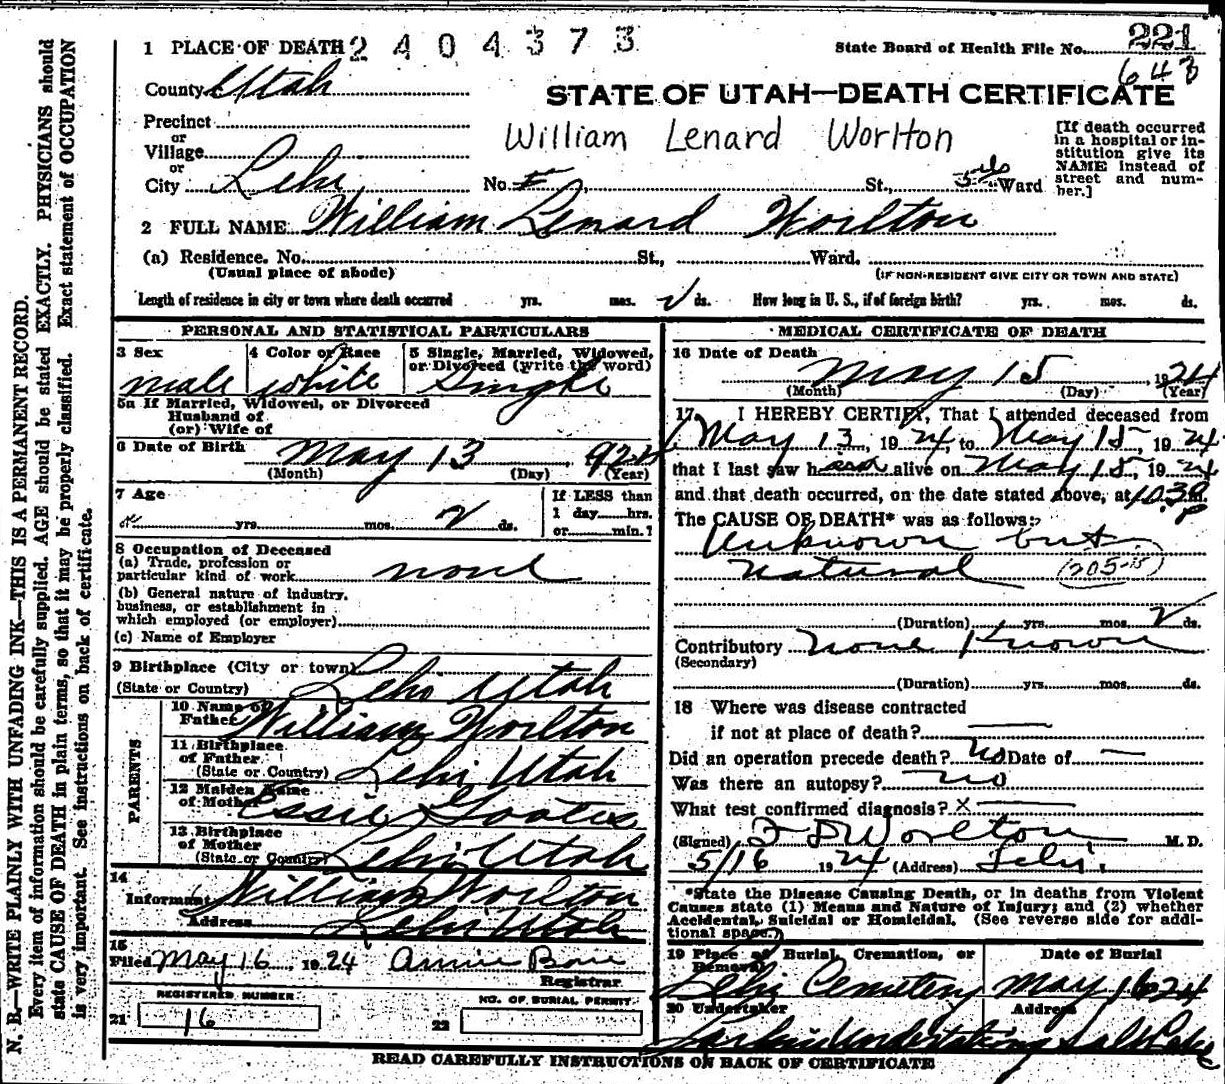 1 PLACE OF DEATH 2404373
State Board of Health File No. 221
643
County Utah
STATE OF UTAH—DEATH CERTIFICATE
Precinct
or
Village
or
City Lehi
William Lenard Worlton
No. St., 5th Ward
[If death occurred
in a hospital or in-
stitution give its
NAME instead of
street and num-
ber.]
2 FULL NAME William Lenard Worlton
(a) Residence. No. St., Ward.
(Usual place of abode) (IF NON-RESIDENT GIVE CITY OR TOWN AND STATE)
Length of residence in city or town where death occurred yrs. mos. 2 ds. How long in U. S., if of foreign birth? yrs. mos. ds.
PERSONAL AND STATISTICAL PARTICULARS
3 Sex 4 Color or Race 5 Single, Married, Widowed,
or Divorced (write the word)
male white Single
5a If Married, Widowed, or Divorced
Husband of
(or) Wife of
6 Date of Birth May 13
(Month) (Day) (Year)
7 Age
yrs. mos. 2 ds.
If LESS than
1 day hrs.
or min.?
8 Occupation of Deceased
(a) Trade, profession or
particular kind of work none
(b) General nature of industry,
business, or establishment in
which employed (or employer)
(c) Name of Employer
9 Birthplace (City or town)
(State or Country) Lehi Utah
PARENTS
10 Name of
Father William Worlton
11 Birthplace
of Father
(State or Country) Lehi Utah
12 Maiden Name
of Mother Essie Goates
13 Birthplace
of Mother
(State or Country) Lehi Utah
14
Informant William Worlton
Address Lehi Utah
15
Filed May 16, 1924 Annie
Registrar
REGISTERED NUMBER
21 16
NO. OF BURIAL PERMIT
22
MEDICAL CERTIFICATE OF DEATH
16 Date of Death
May 15, 1924
(Month) (Day) (Year)
17 I HEREBY CERTIFY, That I attended deceased from
May 13, 1924, to May 15 1924
that I last saw h alive on May 15, 1924
and that death occurred, on the date stated above, at 10.30 P m.
The CAUSE OF DEATH* was as follows:
Unknown but
natural (205-15)
(Duration) yrs. mos. 2 ds.
Contributory None Known
(Secondary)
(Duration) yrs. mos. ds.
18 Where was disease contracted
if not at place of death?
Did an operation precede death? No Date of —
Was there an autopsy? no
What test confirmed diagnosis? x
(Signed) Worlton M. D.
5/16 1924 (Address) Lehi
*State the Disease Causing Death, or in deaths from Violent
Causes state (1) Means and Nature of Injury; and (2) whether
Accidental, Suicidal or Homicidal. (See reverse side for addi-
tional space.)
19 Place of Burial, Cremation, or
Removal
Date of Burial
Lehi Cemetery May 16 24
20 Undertaker Address
Larkin Undertaking Salt Lake
READ CAREFULLY INSTRUCTIONS ON BACK OF CERTIFICATE
N. B.—WRITE PLAINLY WITH UNFADING INK—THIS IS A PERMANENT RECORD.
Every item of information should be carefully supplied. AGE should be stated EXACTLY. PHYSICIANS should
state CAUSE OF DEATH in plain terms, so that it may be properly classified. Exact statement of OCCUPATION
is very important. See instructions on back of certificate.